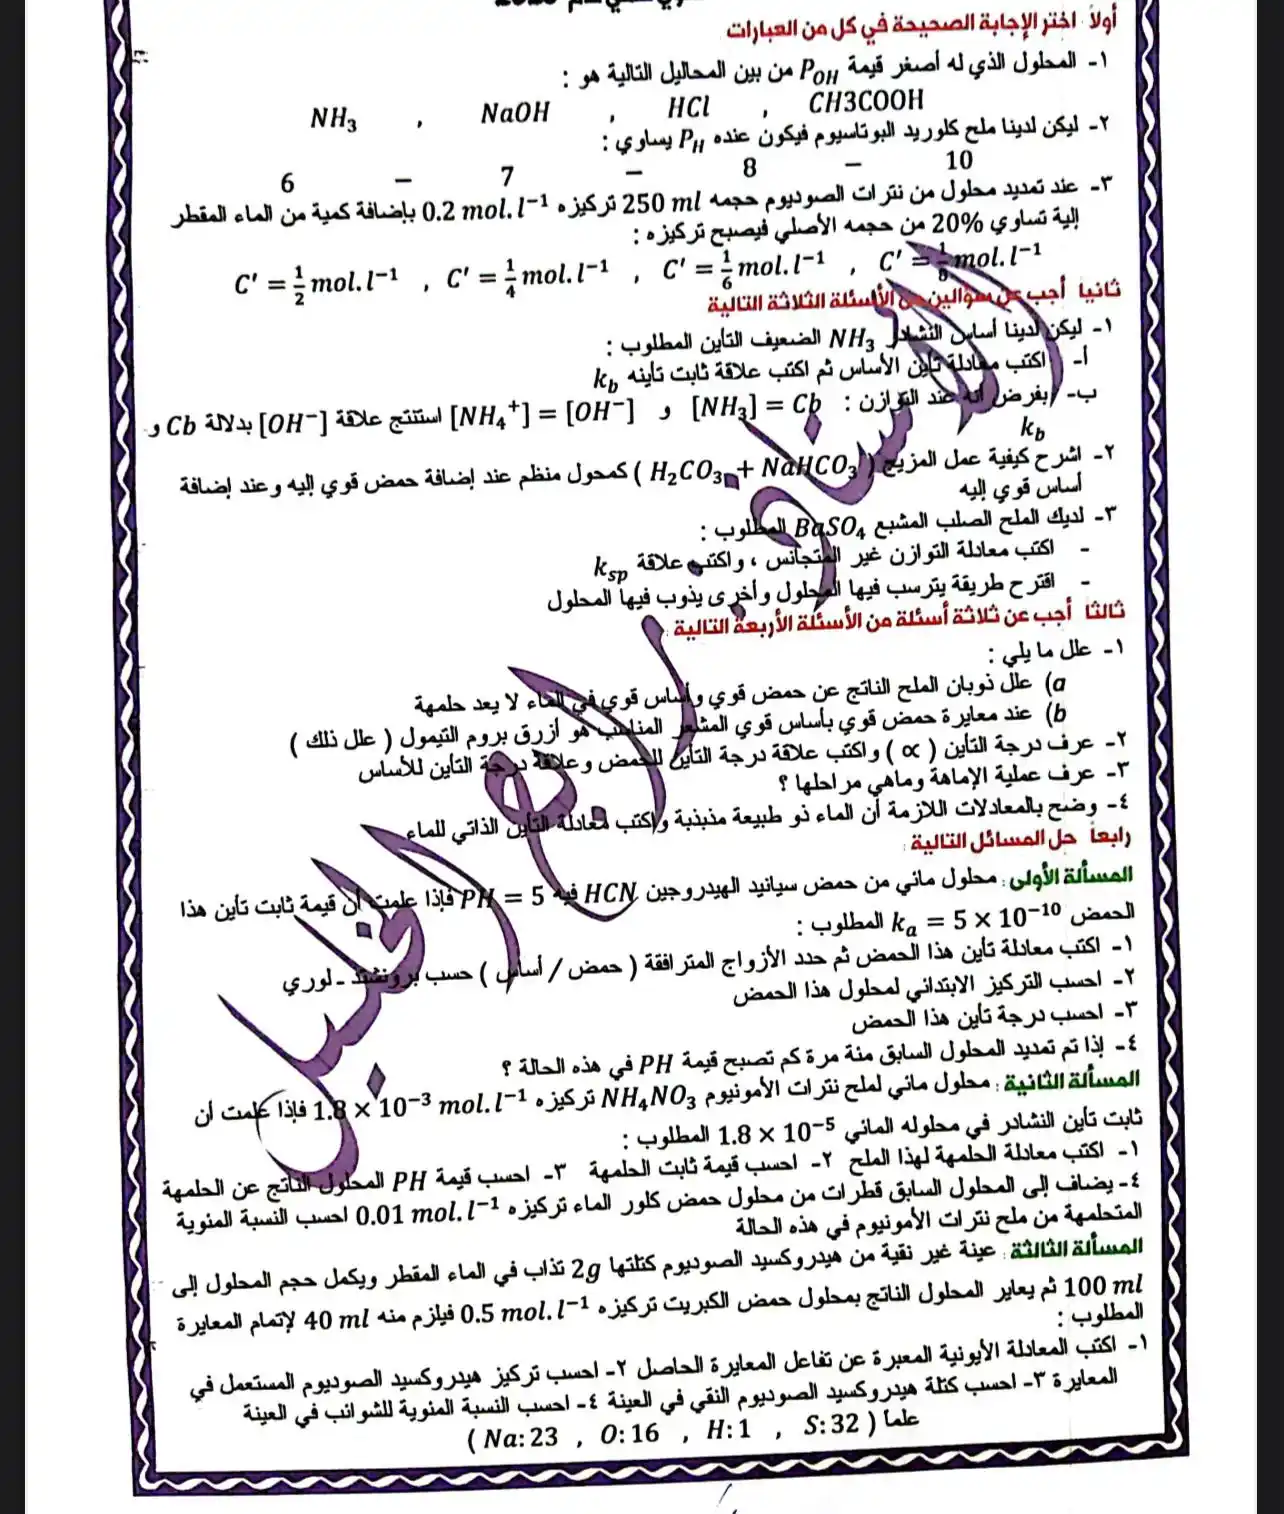 أولاً اختر الإجابة الصحيحة في كل من العبارات
١- المحلول الذي له أصغر قيمة P_OH من بين المحاليل التالية هو :
CH3COOH , HCl , NaOH , NH₃
٢- ليكن لدينا ملح كلوريد البوتاسيوم فيكون عنده P_H يساوي :
10 – 8 – 7 – 6
٣- عند تمديد محلول من نترات الصوديوم حجمه 250 ml تركيزه 0.2 mol.l⁻¹ بإضافة كمية من الماء المقطر
إلية تساوي 20% من حجمه الأصلي فيصبح تركيزه :
C′ = 1/8 mol.l⁻¹ , C′ = 1/6 mol.l⁻¹ , C′ = 1/4 mol.l⁻¹ , C′ = 1/2 mol.l⁻¹
ثانيا أجب عن سؤالين من الأسئلة الثلاثة التالية
١- ليكن لدينا أساس النشادر NH₃ الضعيف التأين المطلوب :
أ- اكتب معادلة تأين الأساس ثم اكتب علاقة ثابت تأينه k_b
ب- بفرض أنه عند التوازن : [NH₃] = Cb و [NH₄⁺] = [OH⁻] استنتج علاقة [OH⁻] بدلالة Cb و
k_b
٢- اشرح كيفية عمل المزيج ( H₂CO₃ + NaHCO₃ ) كمحول منظم عند إضافة حمض قوي إليه وعند إضافة
أساس قوي إليه
٣- لديك الملح الصلب المشبع BaSO₄ المطلوب :
- اكتب معادلة التوازن غير المتجانس ، واكتب علاقة k_sp
- اقترح طريقة يترسب فيها المحلول وأخرى يذوب فيها المحلول
ثالثا أجب عن ثلاثة أسئلة من الأسئلة الأربعة التالية :
١- علل ما يلي :
a) علل ذوبان الملح الناتج عن حمض قوي وأساس قوي في الماء لا يعد حلمهة
b) عند معايرة حمض قوي بأساس قوي المشعر المناسب هو أزرق بروم التيمول ( علل ذلك )
٢- عرف درجة التأين ( ∝ ) واكتب علاقة درجة التأين للحمض وعلاقة درجة التأين للأساس
٣- عرف عملية الإماهة وماهي مراحلها ؟
٤- وضح بالمعادلات اللازمة أن الماء ذو طبيعة مذبذبة واكتب معادلة التأين الذاتي للماء
رابعاً حل المسائل التالية :
المسألة الأولى : محلول مائي من حمض سيانيد الهيدروجين HCN فيه PH = 5 فإذا علمت أن قيمة ثابت تأين هذا
الحمض k_a = 5 × 10⁻¹⁰ المطلوب :
١- اكتب معادلة تأين هذا الحمض ثم حدد الأزواج المترافقة ( حمض / أساس ) حسب برونشتد - لوري
٢- احسب التركيز الابتدائي لمحلول هذا الحمض
٣- احسب درجة تأين هذا الحمض
٤- إذا تم تمديد المحلول السابق مئة مرة كم تصبح قيمة PH في هذه الحالة ؟
المسألة الثانية : محلول مائي لملح نترات الأمونيوم NH₄NO₃ تركيزه 1.8 × 10⁻³ mol.l⁻¹ فإذا علمت أن
ثابت تأين النشادر في محلوله المائي 1.8 × 10⁻⁵ المطلوب :
١- اكتب معادلة الحلمهة لهذا الملح ٢- احسب قيمة ثابت الحلمهة ٣- احسب قيمة PH المحلول الناتج عن الحلمهة
٤- يضاف إلى المحلول السابق قطرات من محلول حمض كلور الماء تركيزه 0.01 mol.l⁻¹ احسب النسبة المئوية
المتحلمهة من ملح نترات الأمونيوم في هذه الحالة
المسألة الثالثة : عينة غير نقية من هيدروكسيد الصوديوم كتلتها 2g تذاب في الماء المقطر ويكمل حجم المحلول إلى
100 ml ثم يعاير المحلول الناتج بمحلول حمض الكبريت تركيزه 0.5 mol.l⁻¹ فيلزم منه 40 ml لإتمام المعايرة
المطلوب :
١- اكتب المعادلة الأيونية المعبرة عن تفاعل المعايرة الحاصل ٢- احسب تركيز هيدروكسيد الصوديوم المستعمل في
المعايرة ٣- احسب كتلة هيدروكسيد الصوديوم النقي في العينة ٤- احسب النسبة المئوية للشوائب في العينة
علما ( Na: 23 , O: 16 , H: 1 , S: 32 )